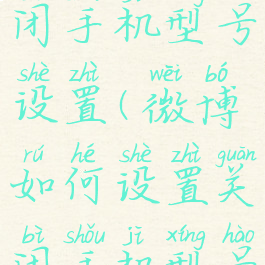 闭手机型号
shè zhì wēi bó
设置(微博
rú hé shè zhì guān
如何设置关
bì shǒu jī xíng hào
闭手机型号